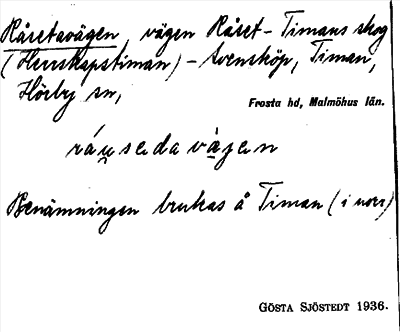 Råsetavägen, vägen Råset - Timans skog
(Herrskapstiman) - Svensköp, Timan,
Hörby sn,
Frosta hd, Malmöhus län.
ráu̯sedavàgen
Benämningen brukas å Timan (i norr)
GÖSTA SJÖSTEDT 1936.